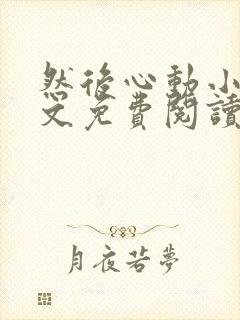 然後心動小
文免費閱讀
月夜若夢